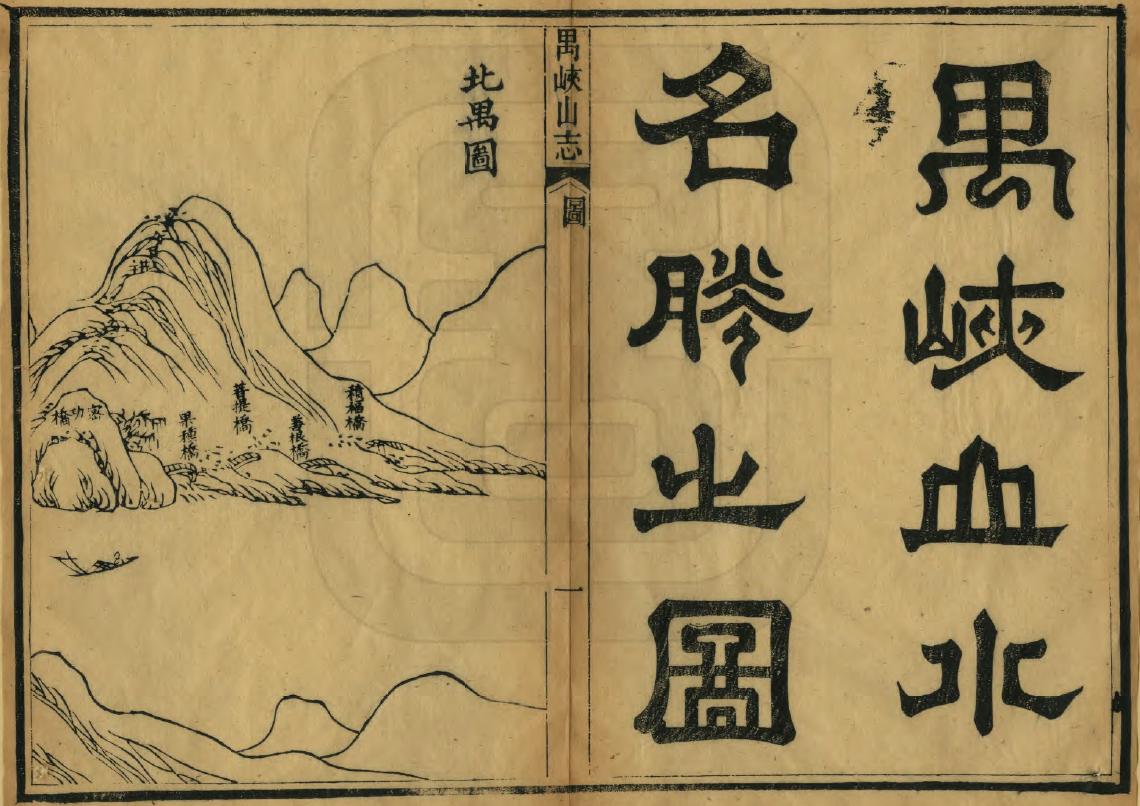 禺峽山水
名勝之圖
禺峽山志
圖
一
北禺圖
積福橋
善根橋
菩提橋
果種橋
密功橋